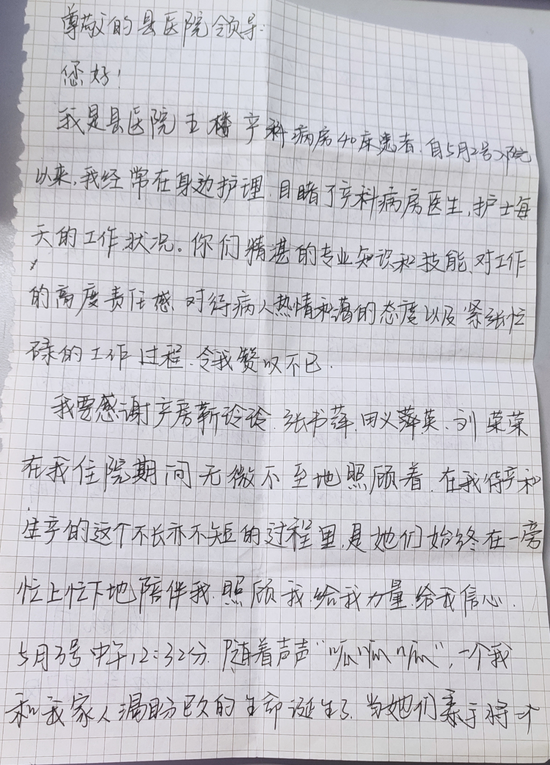 尊敬的县医院领导:
您好!
我是县医院五楼产科病房40床患者,自5月2号入院
以来,我经常在身边护理,目睹了产科病房医生,护士每
天的工作状况。你们精湛的专业知识和技能,对工作
的高度责任感,对待病人热情和蔼的态度以及紧张忙
碌的工作过程,令我赞叹不已.
我要感谢产房靳玲玲,张书萍,田义萍英,刘荣荣
在我住院期间无微不至地照顾着,在我待产和
生产的这个不长亦不短的过程里,是她们始终在一旁
忙上忙下地陪伴我,照顾我,给我力量,给我信心.
5月3号中午12:32分,随着声声"呱呱呱",一个我
和我家人渴盼已久的生命诞生了,当她们亲手将一个